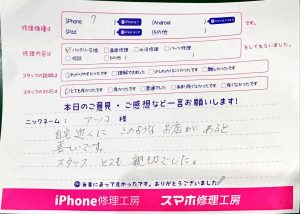 修理機種は
iPhone 7
(Android
iPad
(その他
修理内容は
バッテリー交換 画面修理 水没修理 パーツ修理
をしてもらいました。
相談 その他 (
スタッフの説明は
わかりやすかった 理解できました 少しわかりにくかった 難しかった
スタッフの対応は
とても良かった 良かった 普通でした あまり良くなかった 良くなかった
本日のご意見・ご感想など一言お願いします!
ニックネーム: アッコ 様
自宅近くに このような お店が あると
喜しいです。
スタッフ とても 親切でした。
当店に送って良かったです。ありがとうございました!
iPhone修理工房 スマホ修理工房